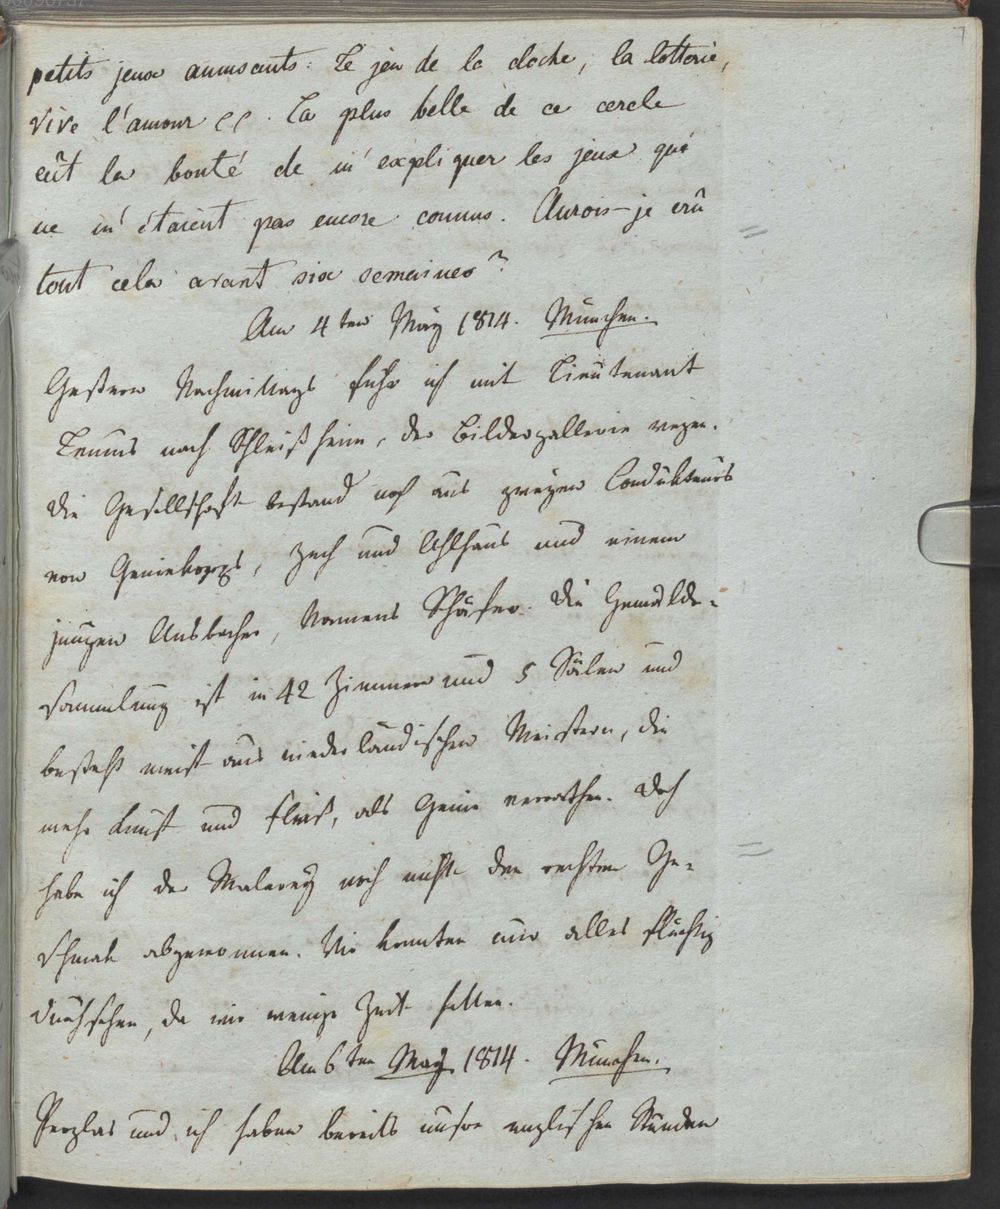 petits jeux amusants: Le jeu de la cloche, la lotterie,
vive l'amour cc. La plus belle de ce cercle
eût la bonté de m'expliquer les jeux qui
ne m'étaient pas encore connus. Aurois-je crû
tout cela avant six semaines?
Am 4ten May 1814. München.
Gestern Nachmittags fuhr ich mit Lieutenant
nach Schleißheim, der Bildergallerie wegen.
Die Gesellschaft bestand noch aus zweyen Condukteurs
vom Geniekorps, und und einem
jungen Ansbacher, Namens Schäfer. Die Gemälde-
sammlung ist in 42 Zimmern und 5 Sälen und
besteht meist aus niederländischen Meistern, die
mehr Kunst und Fleiß, als Genie verrathen. Doch
habe ich der Malerey noch nicht den rechten Ge-
schmak abgewonnen. Wir konnten nur alles flüchtig
durchsehen, da wir wenige Zeit hatten.
Am 6ten May 1814. München.
Perglas und ich haben bereits unsre englischen Stunden
7